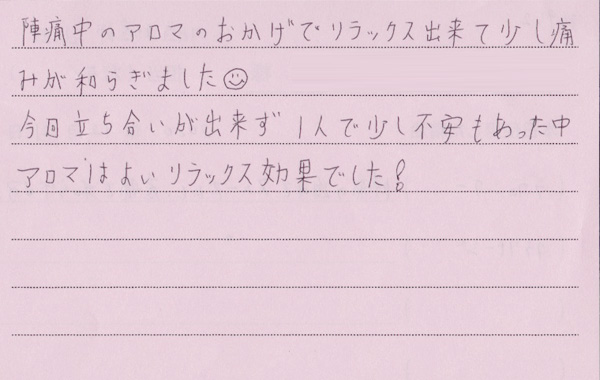 陣痛中のアロマのおかげでリラックス出来て少し痛
みが和らぎました☺
今回立ち合いが出来ず1人で少し不安もあった中
アロマはよいリラックス効果でした!